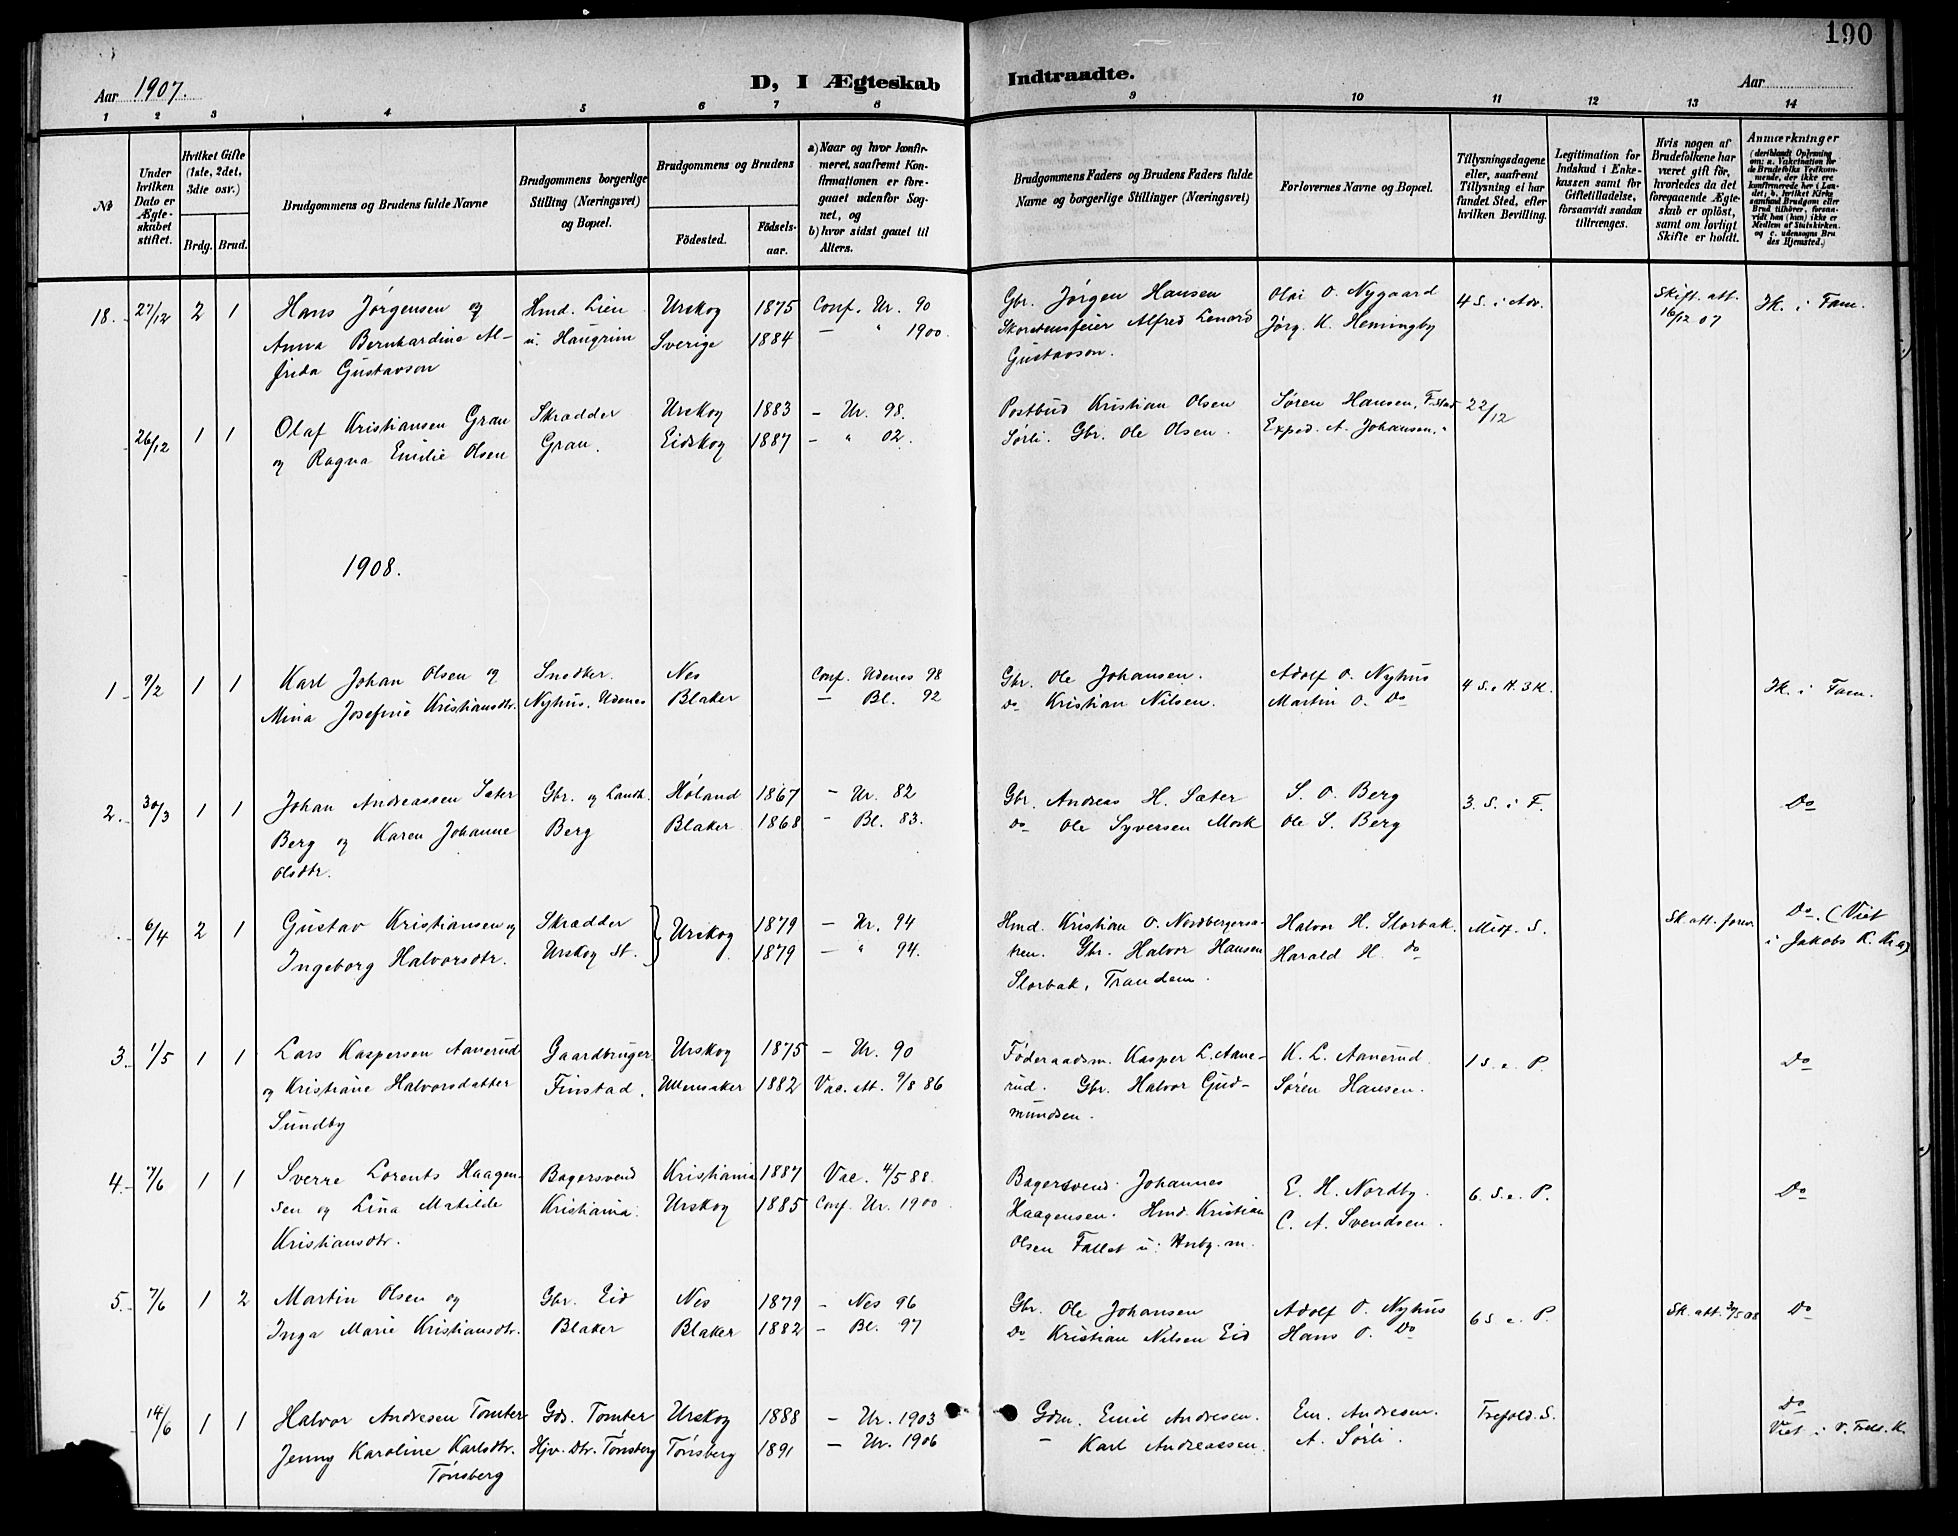 190
Aar 1907.
D, I Ægteskab Indtraadte.
Aar
1 2 3 4 5 6 7 8 9 10 11 12 13 14
No
Under hvilken Dato er Ægteskabet stiftet.
Hvilket Gifte (1ste, 2det, 3die osv.)
Brdg. Brud.
Brudgommens og Brudens fulde Navne
Brudgommens borgerlige Stilling (Næringsvei) og Bopæl.
Brudgommens og Brudens
Fødested.
Fødsels-aar.
a) Naar og hvor konfirmeret, saafremt Konfirmationen er foregaaet udenfor Sognet, og
b) hvor sidst gaaet til Alters.
Brudgommens Faders og Brudens Faders fulde Navne og borgerlige Stillinger (Næringsvei)
Forlovernes Navne og Bopæl.
Tillysningsdagene eller, saafremt Tillysning ei har fundet Sted, efter hvilken Bevilling.
Legitimation for Indskud i Enkekassen samt for Giftetilladelse, forsaavidt saadan tiltrænges.
Hvis nogen af Brudefolkene har været gift før, hvorledes da det foregaaende Ægteskab er opløst, samt om lovligt Skifte er holdt.
Anmærkninger
(deriblandt Oplysning om: a. Vakcination for de Brudefolks Vedkommende, der ikke ere konfirmerede her i Landet; b. hvilket Kirkesamfund Brudgom eller Brud tilhører, forsaavidt han (hun) ikke er Medlem af Statskirken, og c. udensogns Brudes Hjemsted.)
18. 27/12 2 1 Hans Jørgensen og Hmd. Lien Urskog 1875 Conf. Ur. 90 Gbr. Jørgen Hansen Olai O. Nygaard 4 S. i Adv. Skift. att. 16/12 07 Ik. i Fam.
Anna Bernhardine Al- u. Haugrim Sverige 1884 — " 1900. Skorstensfeier Alfred Lenard Jørg. K. Hemingby
frida Gustavson Gustavson.
26/12 1 1 Olaf Kristiansen Grau Skrædder Urskog 1883 — Ur. 98. Postbud Kristian Olsen Søren Hansen, F.stad 22/12
og Ragna Emilie Olsen Grau. Eidskog 1887 — " 02. Sørli. Gbr. Ole Olsen. Exped. A. Johansen. "
1908.
1 9/2 1 1 Karl Johan Olsen og Snedker. Nes Conf. Udenes 98 Gbr. Ole Johansen. Adolf O. Nyhus 4 S. e. H. 3 K. Ik. i Fam.
Mina Josefine Kristiansdtr. Nyhus, Udenes Blaker — Bl. 92 Do Kristian Nilsen. Martin O. Do
2. 30/3 1 1 Johan Andreassen Sater Gbr. og Landh. Høland 1867 — Ur. 82 Gbr. Andreas H. Sater S. O. Berg 3. S. i F. Do
Berg og Karen Johanne Berg Blaker 1868 — Bl. 83. Do Ole Syversen Mork Ole S. Berg
Olsdtr.
6/4 2 1 Gustav Kristiansen og Skrædder Urskog 1879 — Ur. 94 Hmd. Kristian O. Nordbergersa- Halvor H. Storbak. Midf. S. Sk. att. forev. Do. (Viet
Ingeborg Halvorsdtr. Urskog St. 1879 — " 94. ken. Gbr. Halvor Hansen Harald H. Do i Jakobs K. Kra)
Storbak, Trandem.
3. 1/5 1 1 Lars Kaspersen Aanerud Gaardbruger Urskog 1875 — Ur. 90 Føderaadsm. Kasper L. Aane- K. L. Aanerud. 1 S. e. P. Do
og Kristiane Halvorsdatter Finstad. Ullensaker 1882 Vac. att. 9/8 86 rud. Gbr. Halvor Gud- Søren Hansen.
Sundby mundsen.
4. 7/6 1 1 Sverre Lorents Haagen- Bagersvend Kristiania 1887 Vac. 4/5 88. Bagersvend Johannes E. H. Nordby. 6. S. e. P. Do
sen og Lina Matilde Kristiania. Urskog 1885 Conf. Ur. 1900. Haagensen. Hmd. Kristian C. A. Svendsen.
Kristiansdtr. Olsen Fallet u.
5. 7/6 1 2 Martin Olsen og Gbr. Eid Nes 1879 — Nes 96 Gbr. Ole Johansen Adolf O. Nyhus 6 S. e. P. Sk. att. Do
Inga Marie Kristiansdtr. Blaker Blaker 1882 — Bl. 97 Do Kristian Nilsen Eid Hans O. Do
14/6 1 1 Halvor Andresen Tomter Gds. Tomter Urskog 1888 — Ur. 1903 Gdm. Emil Andresen. Em. Andresen. Trefold. S. Do
Jenny Karoline Karlsdtr. Hjv. Dtr. Tønsberg Tønsberg 1891 — Ur. 1906 — Karl Andreassen. A. Sørli. Viet i V. Freds. K.
Tønsberg